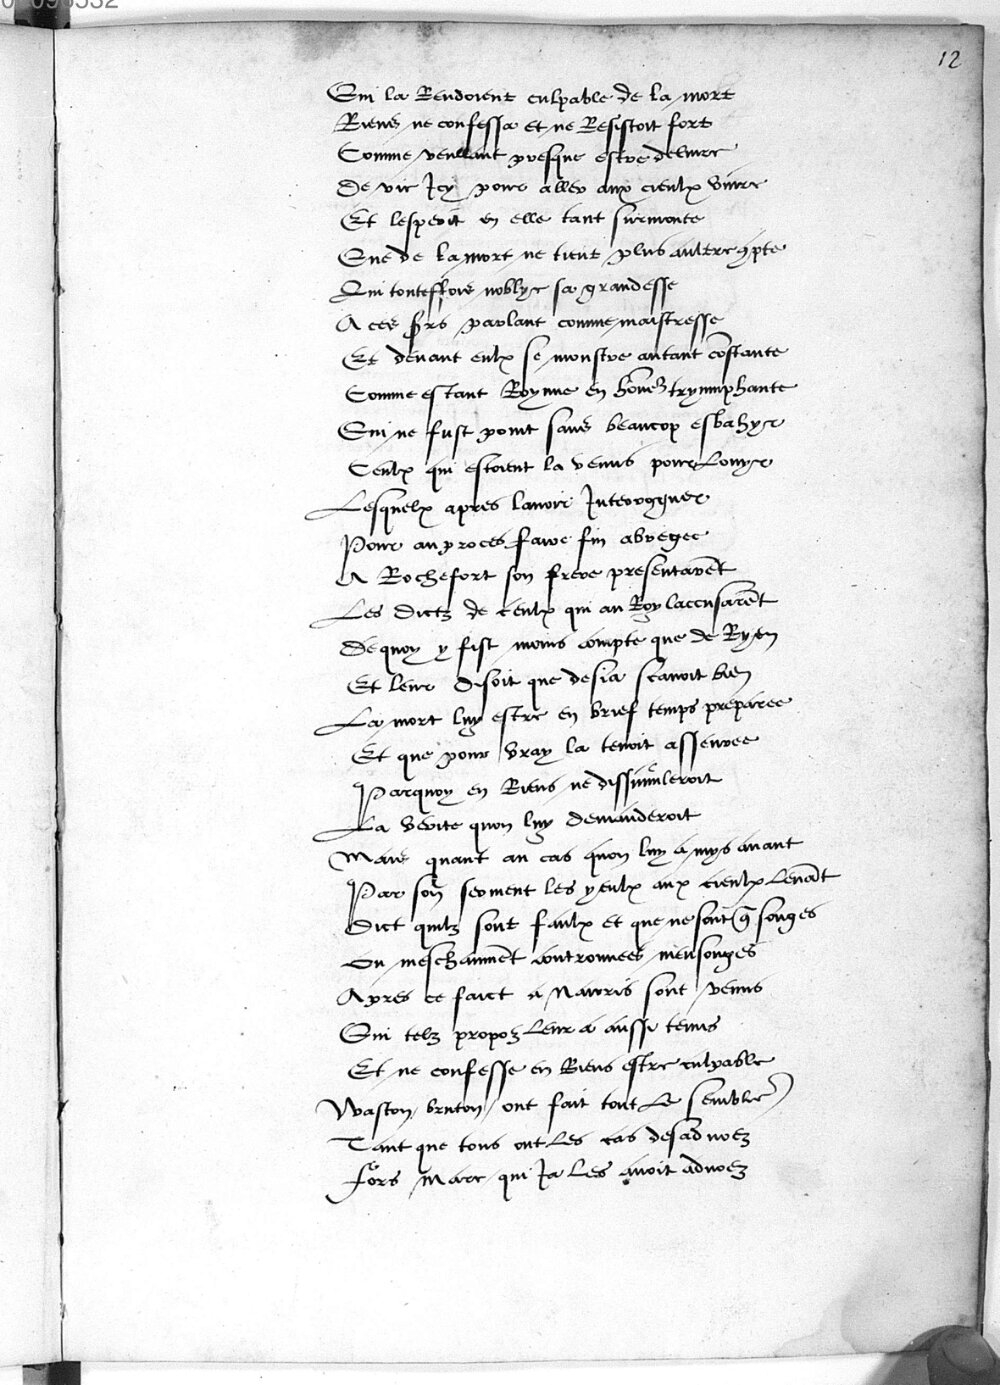 12
Qui la Rendoient culpable de la mort
Riens ne confessa et ne Resistoit fort
Comme veullant presque estre delivre
De vie Icy pour aller aux cieulx vivre
Et lesperit en elle tant surmonte
Que de la mort ne tient plus aultre cõpte
Qui touteffois noblyе sa grandesse
A ces srs parlant comme maistresse
Et devant eulx se monstre autant cõstante
Comme estant Royne en honneur tryumphante
Qui ne fust point sans beaucop esbahyr
Ceulx qui estoient la venus pour Louyr
Lesquelx apres lavoir Interoguer
Pour au proces faire fin abregee
A Rochefort son frere presentarẽt
Les dictz de ceulx qui au Roy laccusarẽt
De quoy y fist moins compte que de Ryen
Et leur disoit que desia scavoit bien
La mort luy estre en brief temps preparee
Et que pour vray la tenoit asseuree
Parquoy en Riens ne dissimuleroit
La verite quon luy demanderoit
Mais quant au cas quon luy a mys avant
Par son serment les yeulx aux cieulx levãt
Dict quilz sont faulx et que ne sont q songes
Ou meschamẽt controuvees mensonges
Apres ce faict a Navris sont venus
Qui telz propoz leur a aussi tenus
Et ne confesse en Riens estre culpable
Waston, bruton, ont fait tout le semblable
Tant que tous ont les cas desadvoez
fors Marc qui Ja les avoit advoez